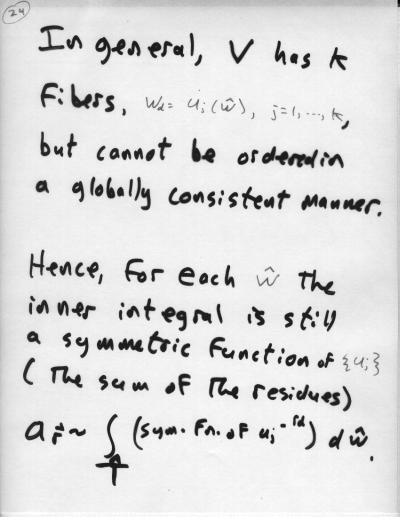 24
In general, V has k
Fibers, w_d = u_j(ŵ), j=1,...,k,
but cannot be ordered in
a globally consistent manner.
Hence, for each ŵ the
inner integral is still
a symmetric function of {u_j}
(The sum of the residues)
a_r⃗ ~ ∫_T (sym. Fn. of u_j^{-r_d}) dŵ.